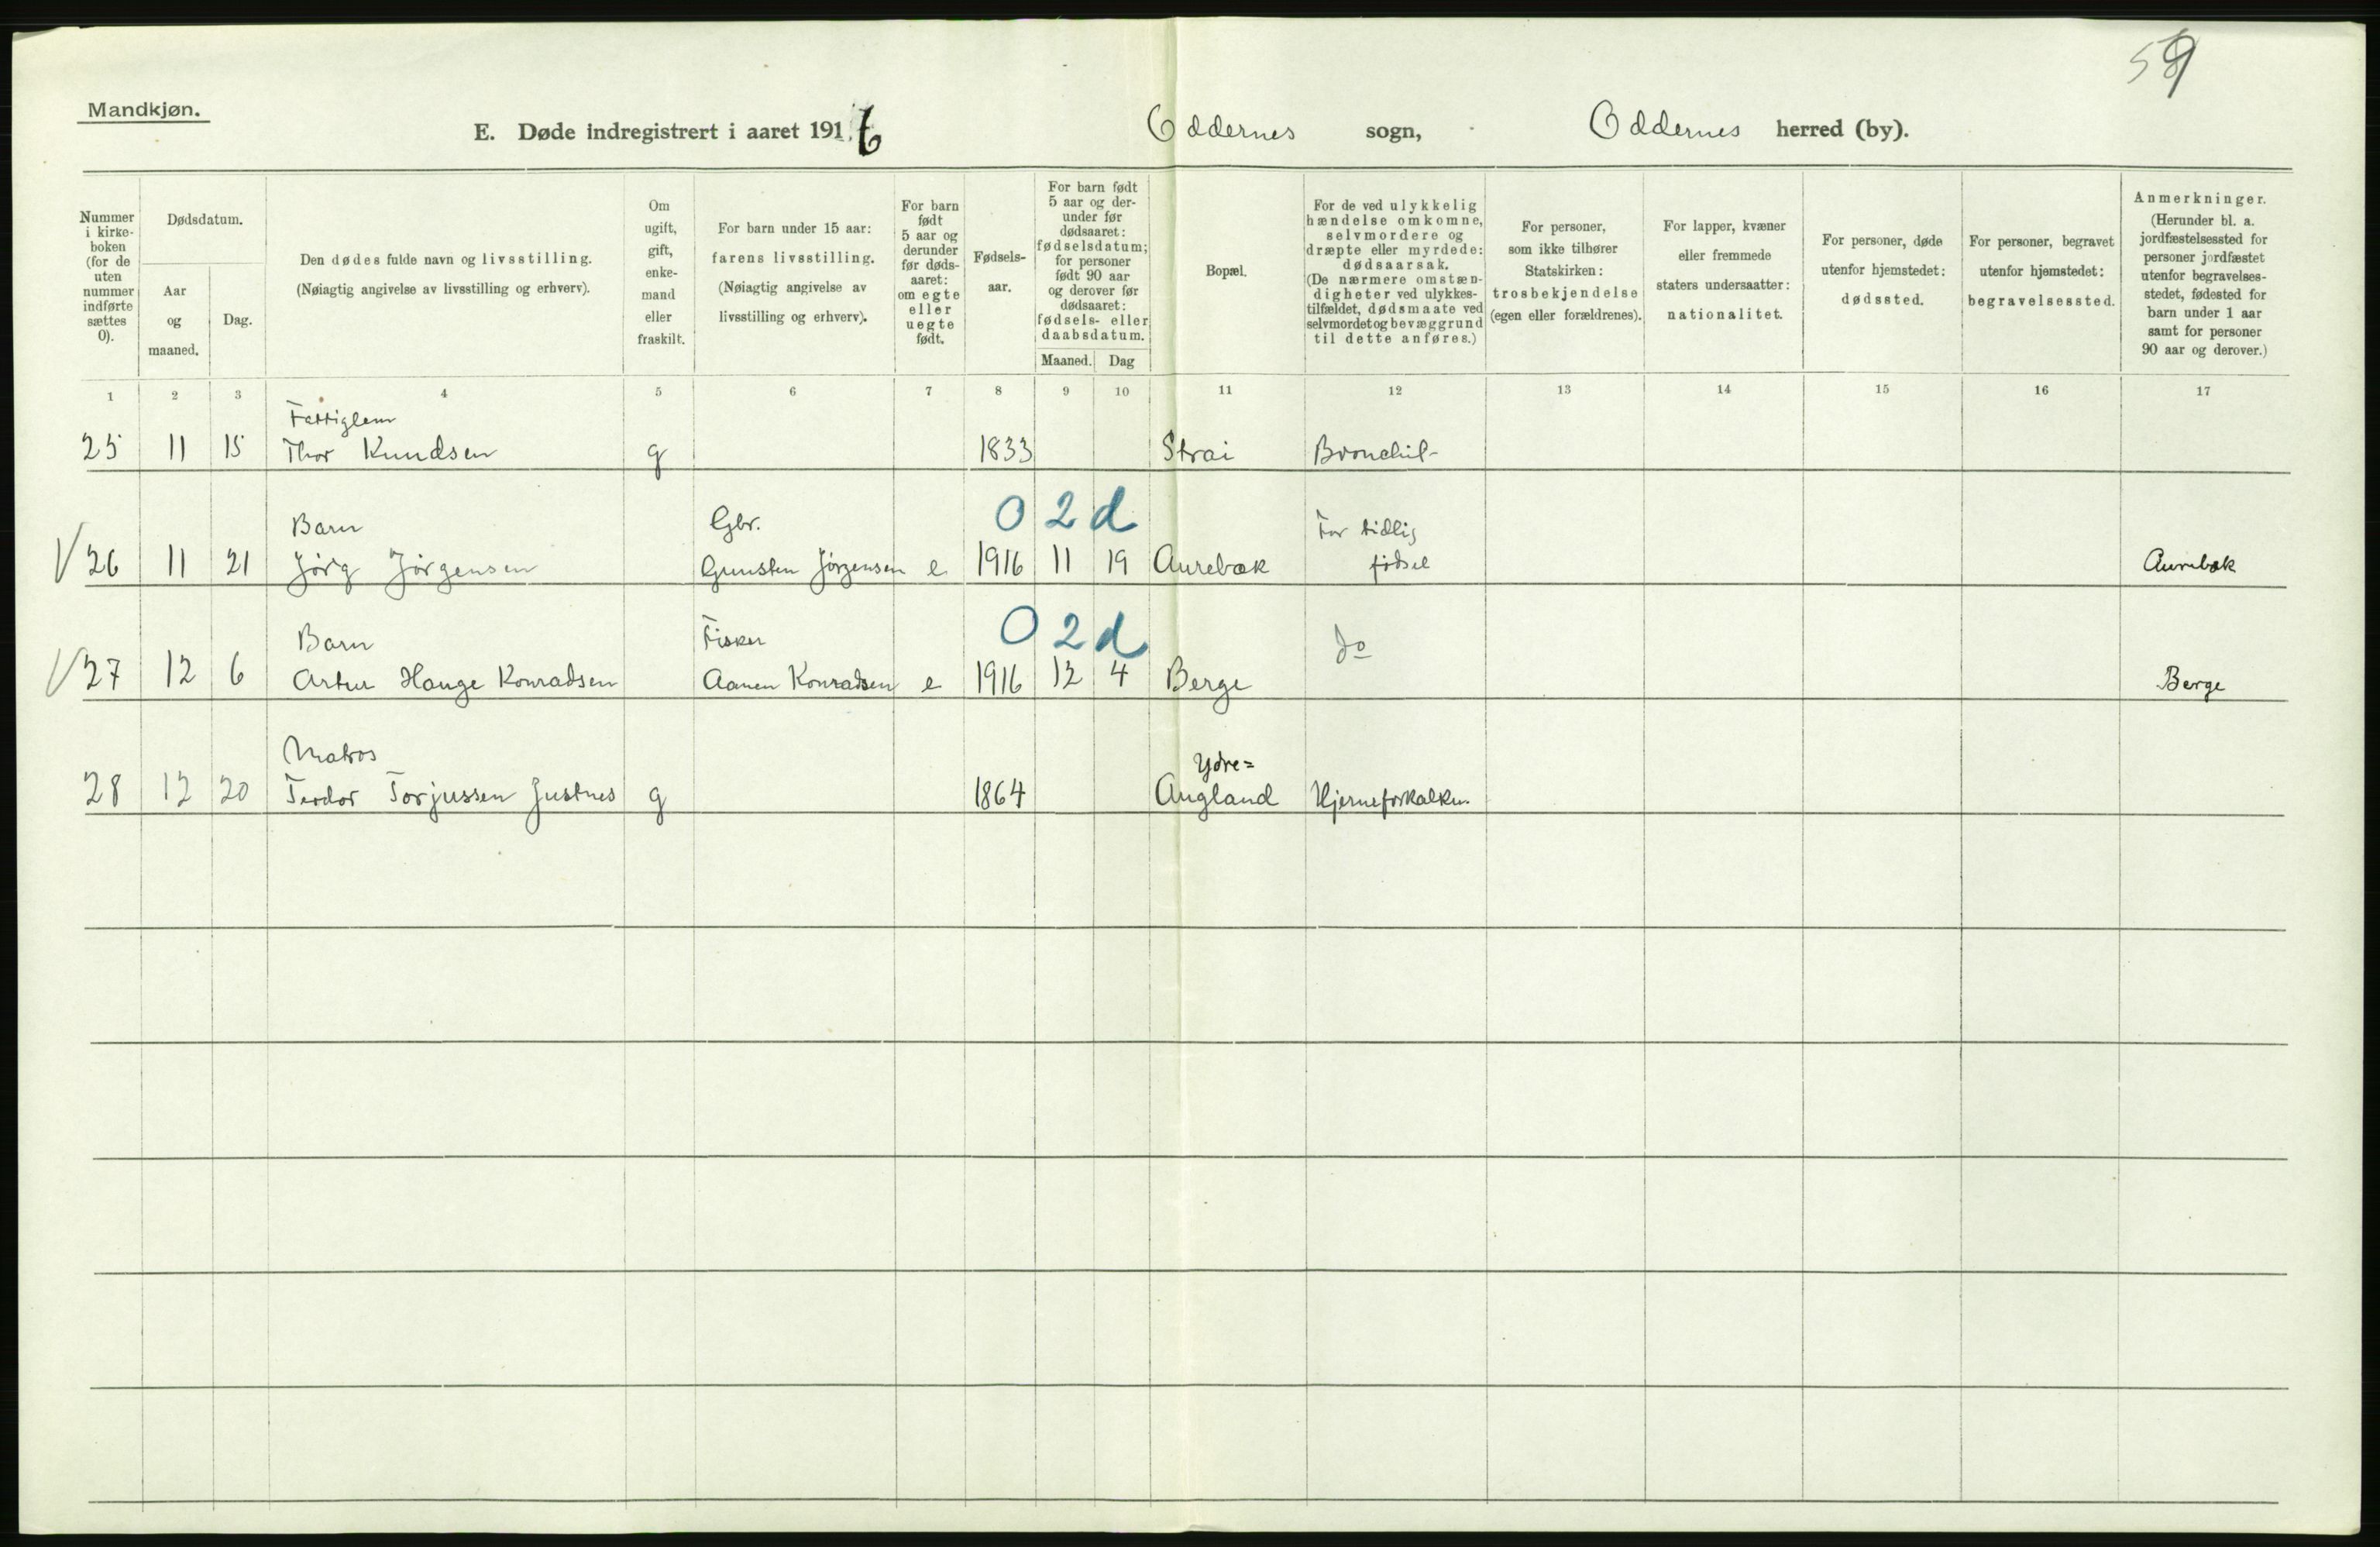 59
Mandkjøn.
E. Døde indregistrert i aaret 1916 Oddernes sogn, Oddernes herred (by).
Nummer i kirke-boken (for de uten nummer indførte sættes 0).
Dødsdatum.
Aar og maaned.
Dag.
Den dødes fulde navn og livsstilling.
(Nøiagtig angivelse av livsstilling og erhverv).
Om ugift, gift, enke-mand eller fraskilt.
For barn under 15 aar:
farens livsstilling.
(Nøiagtig angivelse av
livsstilling og erhverv).
For barn født 5 aar og derunder før døds-aaret: om egte eller uegte født.
Fødsels-aar.
For barn født 5 aar og der-under før dødsaaret: fødselsdatum; for personer født 90 aar og derover før dødsaaret: fødsels- eller daabsdatum.
Maaned. Dag
Bopæl.
For de ved ulykkelig hændelse omkomne, selvmordere og dræpte eller myrdede: dødsaarsak. (De nærmere omstæn-digheter ved ulykkes-tilfældet, dødsmaate ved selvmordet og bevæggrund til dette anføres.)
For personer, som ikke tilhører Statskirken: trosbekjendelse (egen eller forældrenes).
For lapper, kvæner eller fremmede staters undersaatter: nationalitet.
For personer, døde utenfor hjemstedet: dødssted.
For personer, begravet utenfor hjemstedet: begravelsessted.
Anmerkninger. (Herunder bl. a. jordfæstelsessted for personer jordfæstet utenfor begravelses-stedet, fødested for barn under 1 aar samt for personer 90 aar og derover.)
1 2 3 4 5 6 7 8 9 10 11 12 13 14 15 16 17
Fattiglem
25 11 15 Thor Knudsen g 1833 Strai Bronchit-
Barn Gbr. 0 2 d For tidlig
26 11 21 Jørg Jørgensen Gunsten Jørgensen e 1916 11 19 Aurebæk fødsel Aurebæk
Barn Fisker 0 2 d do
27 12 6 Artur Hauge Konradsen Aanen Konradsen e 1916 12 4 Berge Berge
Matros Ydre=
28 12 20 Teodor Torjussen Justnes g 1864 Augland Hjerneforkalkn.